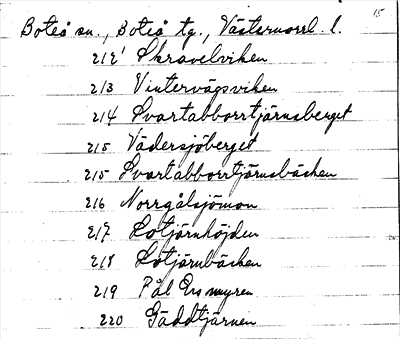 15
Boteå sn., Boteå tg., Västernorrl. l.
212 Skravelviken
213 Vintervägsviken
214 Svartabborrtjärnsberget
215 Vädersjöberget
215 Svartabborrtjärnsbäcken
216 Norrgålsjömon
217 Lotjärnhöjden
218 Lotjärnbäcken
219 Pål Ersmyren
220 Gäddtjärnen